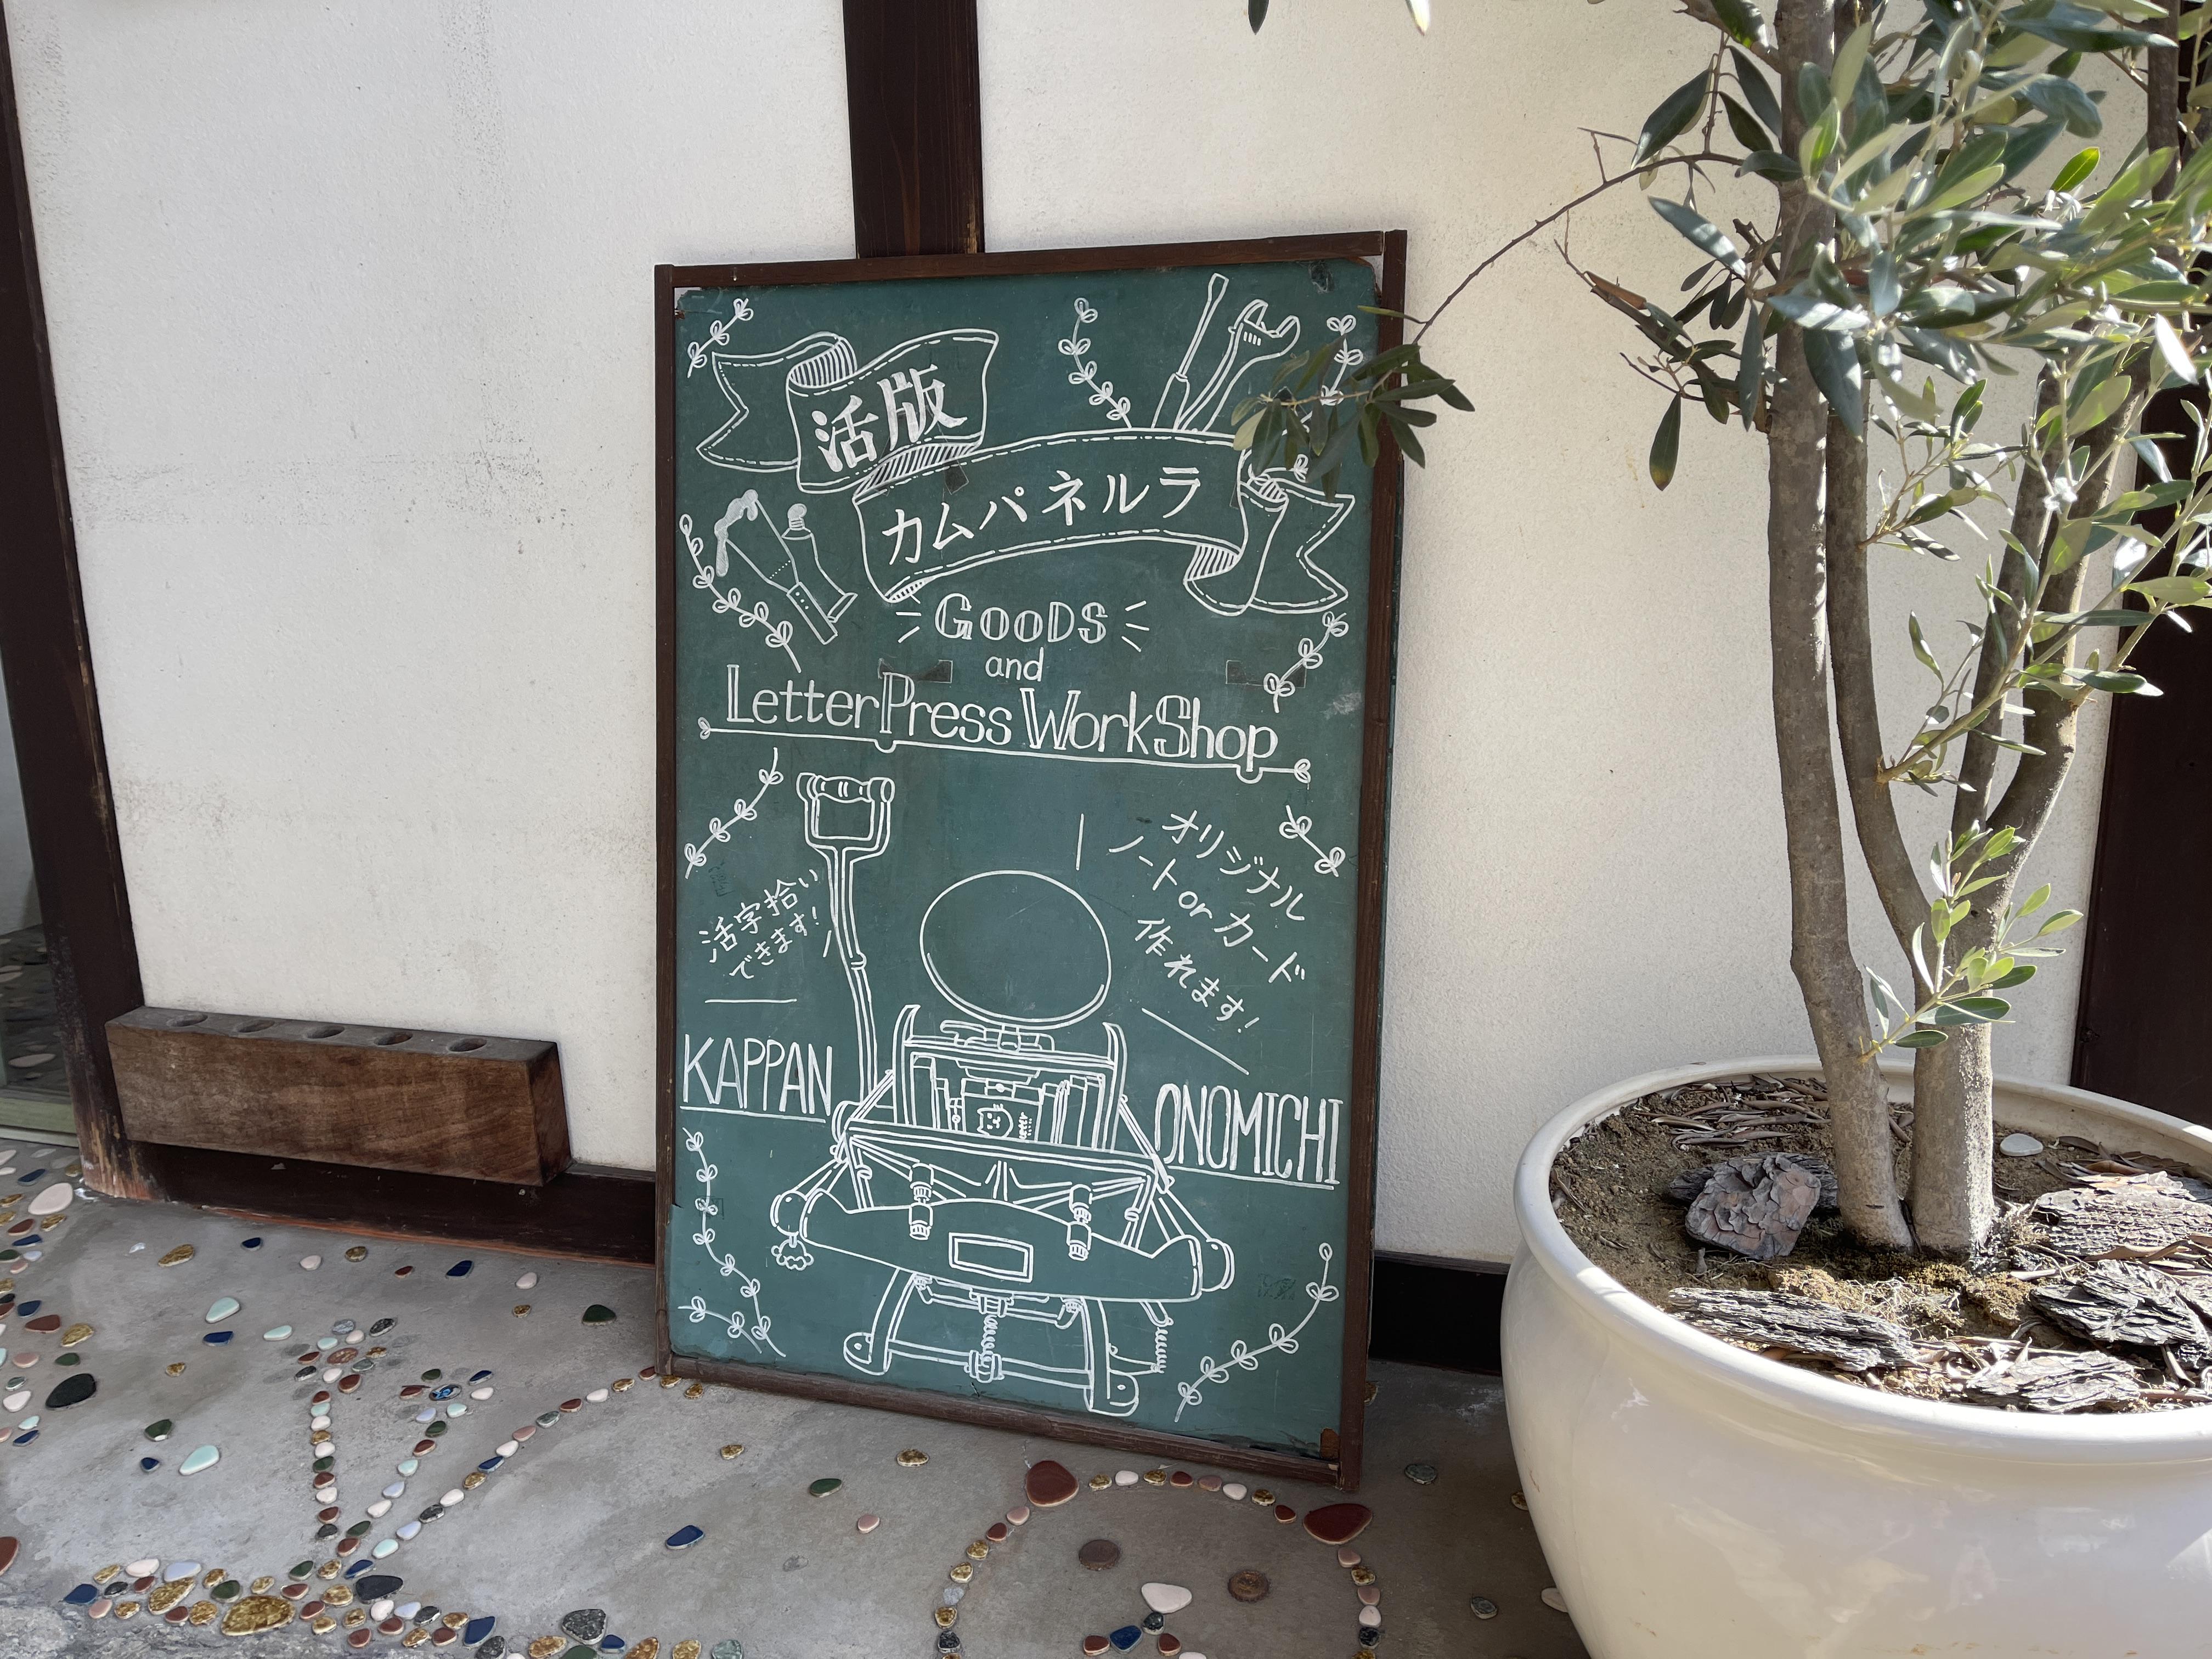 活版
カムパネルラ
GOODS
and
LetterPress WorkShop
活字拾い
できます!
オリジナル
ノートorカード
作れます!
KAPPAN
ONOMICHI